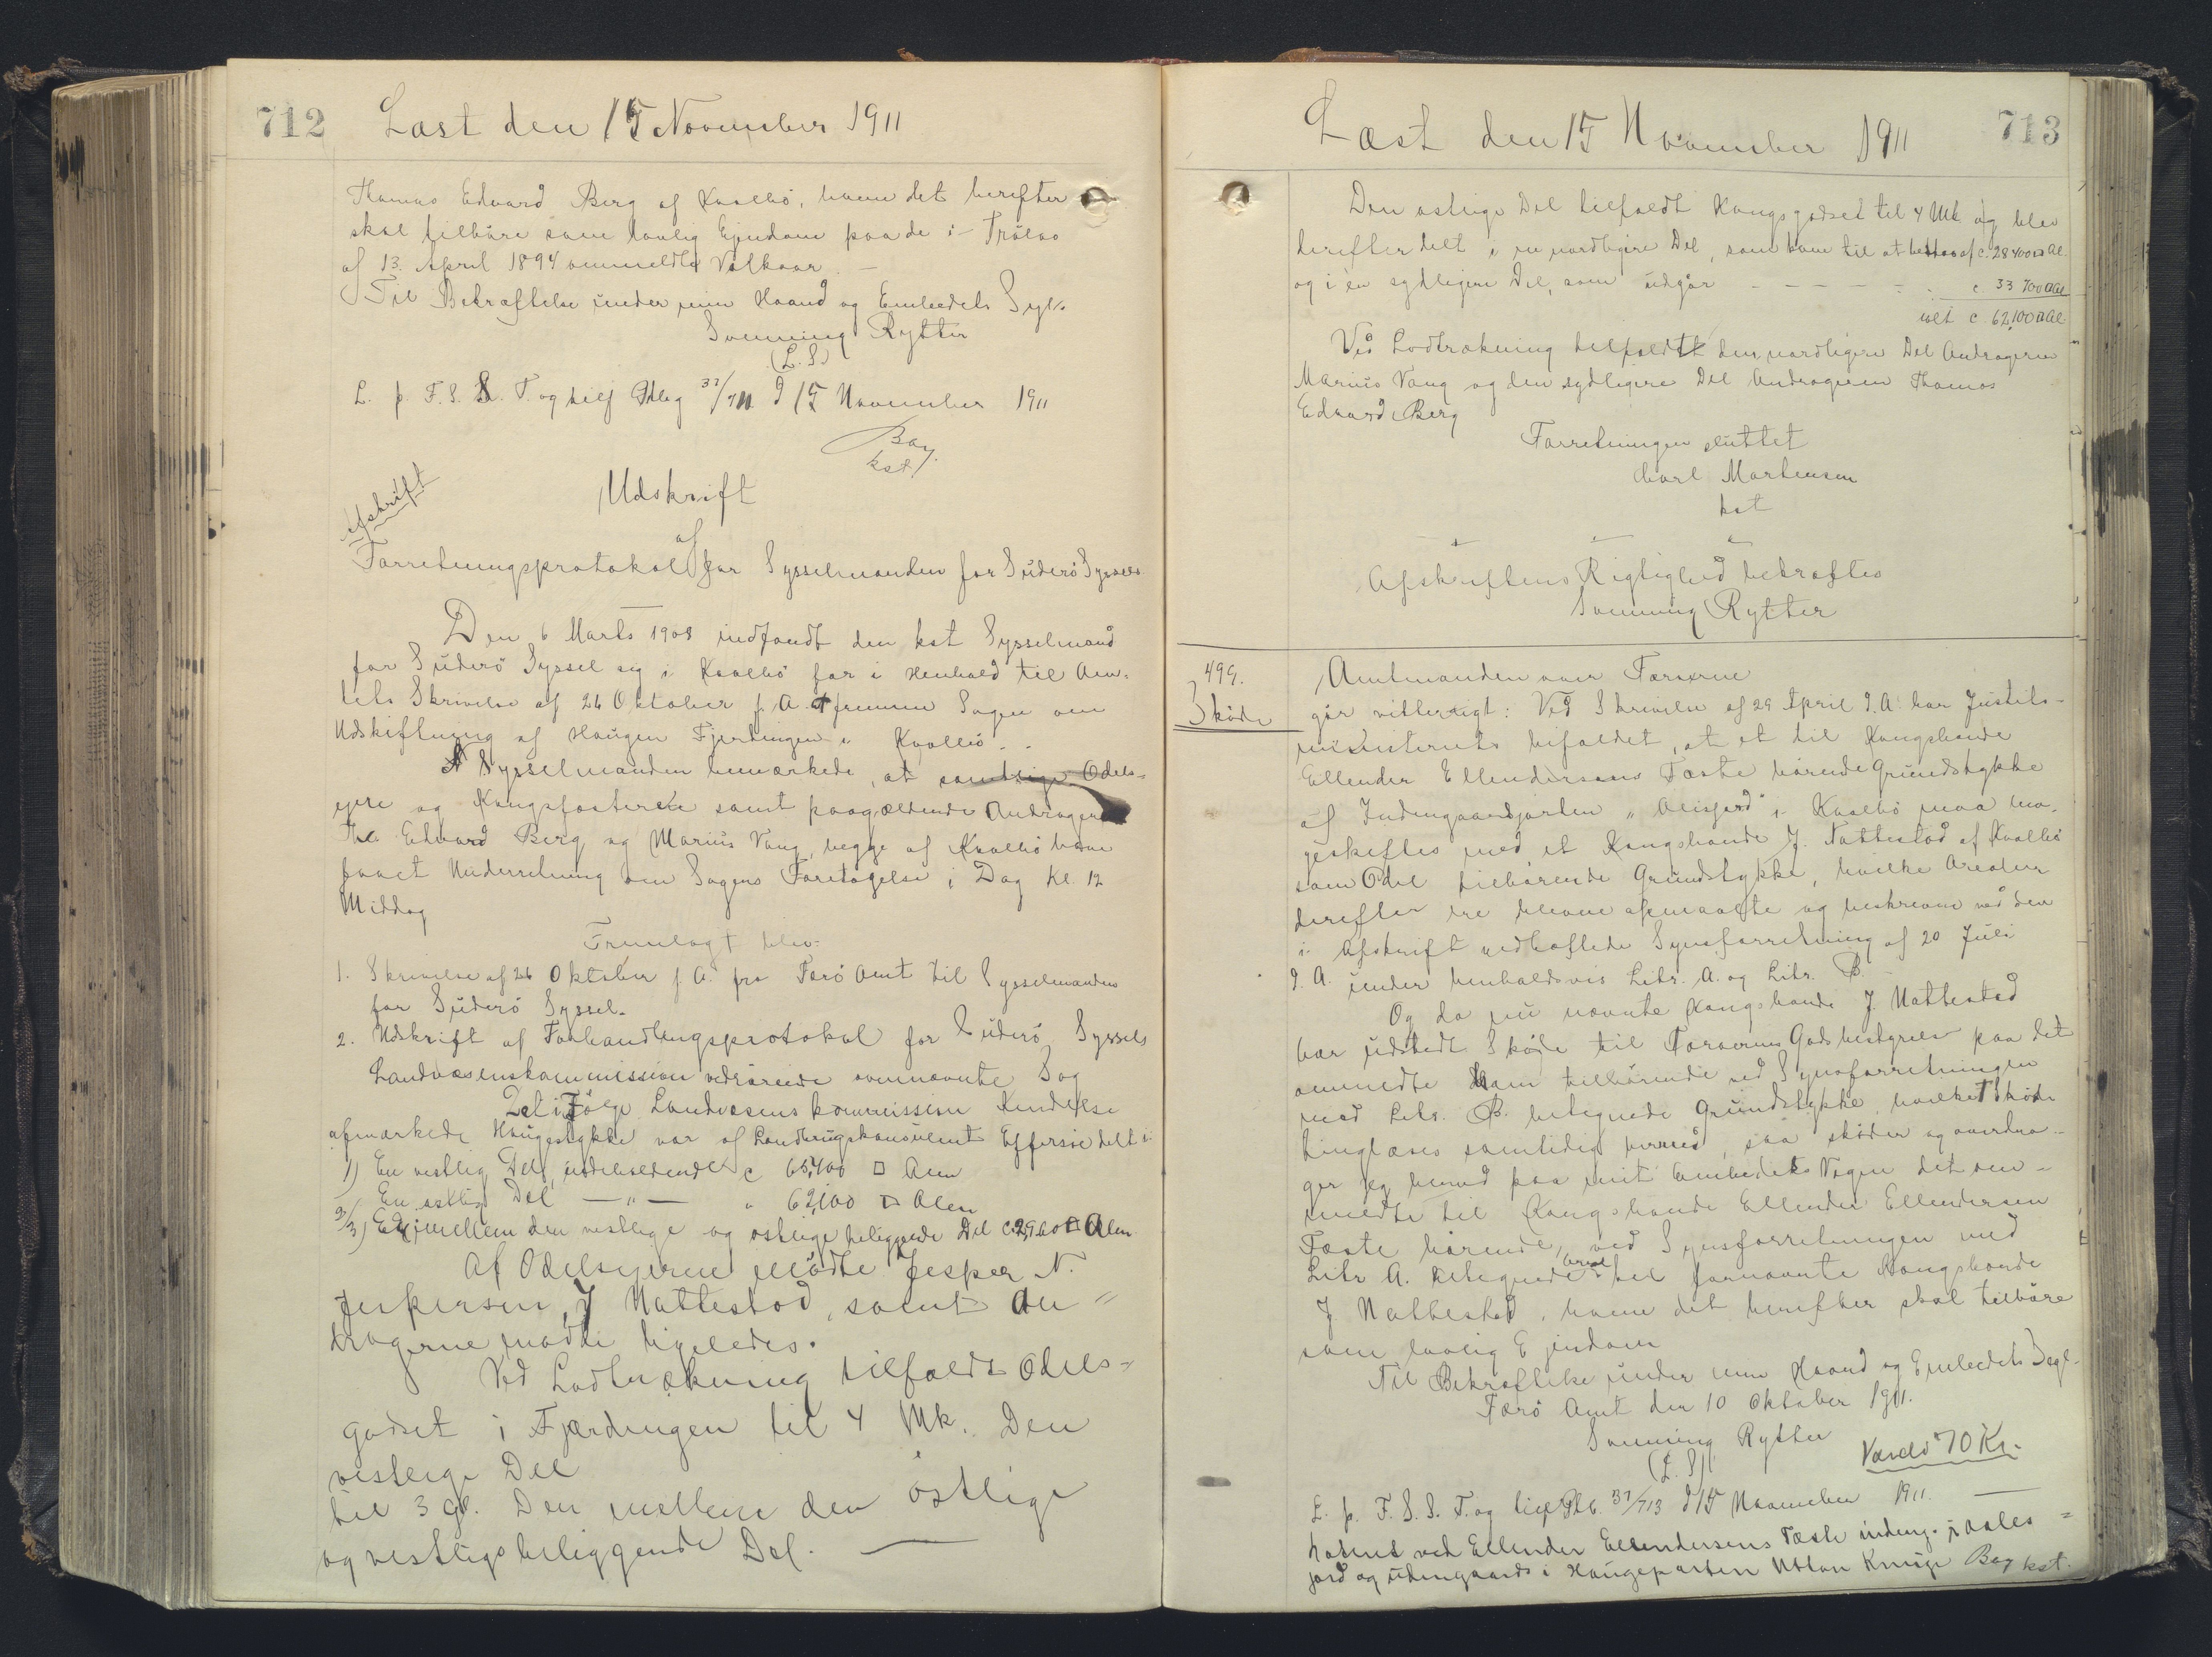 712 Læst den 15 November 1911
Thomas Edvard Berg af Kvalbö, hvem det herefter
skal tilhöre som lovlig Ejendom paa de i Trölov
af 13. April 1894 ommeldte Vilkaar. —
Til Bekræftelse under min Haand og Embedets Segl.
Svenning Rytter
(L. S)
L. p. F. S. S. T. og tilf Ptleg 37/711 d 15 November 1911
Bay
kst.
Afskrift
Udskrift
af
Forretningsprotokol for Sysselmanden for Suderö Syssel
Den 6 Marts 1908 indfandt den kst Sysselmand
for Suderö Syssel sig i Kvalbö for i Henhold til Am-
tets Skrivelse af 26 Oktober f. A. at fremme Sagen om
Udskiftning af Haugen Fjerdingen i Kvalbö. -
Sysselmanden bemærkede, at samtlige Odels-
ejere og Kongsfæsterne samt paagældende Andragere
Th. Edvard Berg og Marius Vang, begge af Kvalbö have
faaet Underretning om Sagens Foretagelse i Dag Kl. 12
Middag
Fremlagt blev:
1. Skrivelse af 26 Oktober f. A. fra Færö Amt til Sysselmanden
for Suderö Syssel.
2. Udskrift af Forhandlingsprotokol for Suderö Syssels
Landvæsenskommission vedrörende ovennævnte Sag
Det i Fölge Landvæsenskommission Kendelse
afmærkede Haugestykke var af Landbrugskonsulent Effersöe delt i
1) En vestlig Del, indeholdende c 65,400 □ Alen
2) En östlig Del — „ — „ 62,100 □ Alen
3) En imellem den vestlige og östlige beliggende Del c. 29600 □ Alen
Af Odelsejerne mödte Jesper N.
Jespersen, J Nattestad, samt An-
dragerne mödte ligeledes.
Ved Lodtrækning tilfaldt Odels-
godset i Fjærdingen til 4 Mk. Den
vestlige Del
til 3 gl. Den mellem den östlige
og vestlige beliggende Del. —
Læst den 15 November 1911 713
Den østlige Del tilfaldt Kongsgodset til 4 Mk og blev
derefter delt i en nordligere Del, som kom til at bestaa af c. 28400 □ Al.
og i en sydligere Del, som udgör - - - - - - c. 33 700 □ Al
ialt c 62,100 □ Al.
Ved Lodtrækning tilfaldt den nordligere Del Andrageren
Marius Vang og den sydligere Del Andrageren Thomas
Edvard Berg
Forretningen sluttet
Carl Mortensen
kst
Afskriftens Rigtighed bekræftes
Svenning Rytter
499.
Sköde
Amtmanden over Færøerne
gör vitterligt: Ved Skrivelse af 29 April d. A. har Justits-
ministeriet bifaldet, at et til Kongsbonde
Ellender Ellendersens Fæste hörende Grundstykke
af Indengaardsjorden „Olisjord" i Kvalbö maa ma-
geskiftes med et Kongsbonde J. Nattestad af Kvalbö
som Odel tilhörende Grundstykke, hvilke Arealer
derefter ere blevne afmaalte og beskrevne ved den
i Afskrift vedhæftede Synsforretning af 20 Juli
d. A. under henholdsvis Litr. A. og Litr. B.
Og da nu nævnte Kongsbonde J. Nattestad
har udstedt Sköde til Færøernes Godsbestyrelse paa det
ommeldte ham tilhörende ved Synsforretningen
med Litr. B. betegnede Grundstykke, hvilket Sköde
tinglæses samtidig hermed, saa sköder og overdra-
ger jeg herved paa mit Embedets Vegne det om-
meldte til Kongsbonde Ellender Ellendersen
Fæste hörende, ved Synsforretningen med
Litr A. betegnede Areal til fornævnte Kongsbonde
J Nattestad, hvem det herefter skal tilhöre
som lovlig Ejendom
Til Bekræftelse under min Haand og Embedets Segl.
Færö Amt den 10 Oktober 1911.
Svenning Rytter
(L. S)
Værdi 70 Kr.
L. p. F. S. S. T. og tilf Ptl. 37/713 d 15 November 1911. —
noteret ved Ellender Ellendersens Fæste indeng. i Oales-
jord og udengaards i Haugeparten Uttan Kruge Bay kst.